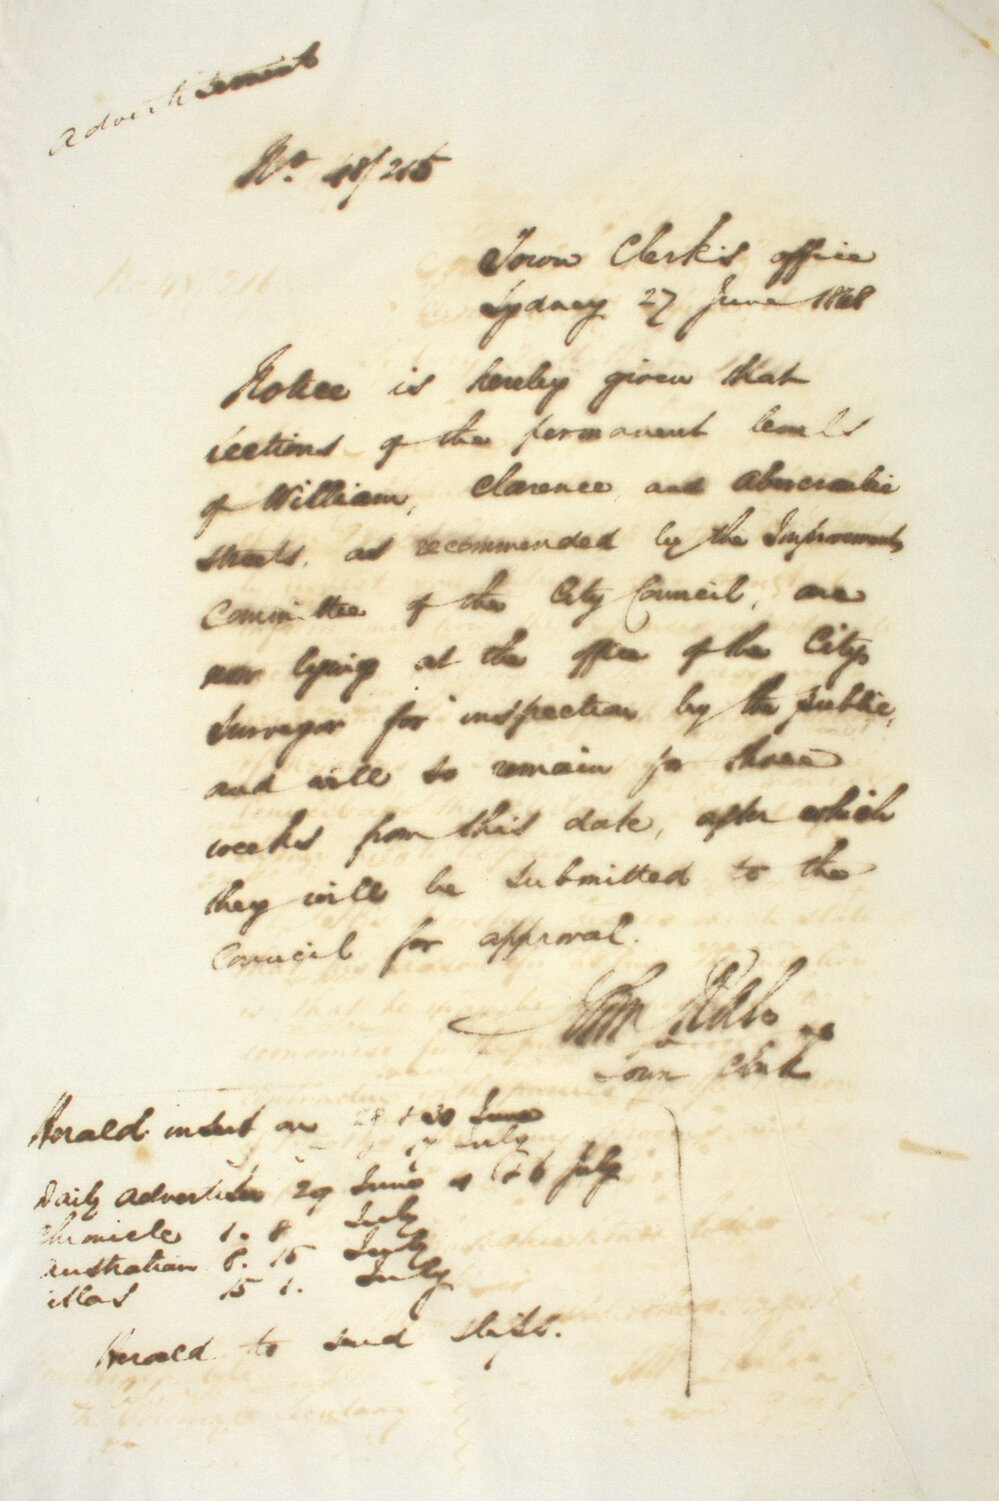 Advertisement
No. 48/215
Town Clerk's office
Sydney 27 June 1848
Notice is hereby given that
sections of the permanent levels
of William, Clarence and Abercrombie
streets, as recommended by the Improvement
Committee of the City Council, are
now lying at the office of the City
Surveyor for inspection by the public,
and will so remain for three
weeks from this date, after which
they will be submitted to the
Council for approval.
Town Clerk
Herald insert on 28 & 30 June
7 July
Daily Advertiser 29 June & 6 July
Chronicle 1. 8 July
Australian 8. 15 July
Atlas 15 1. July
Herald to send slips.